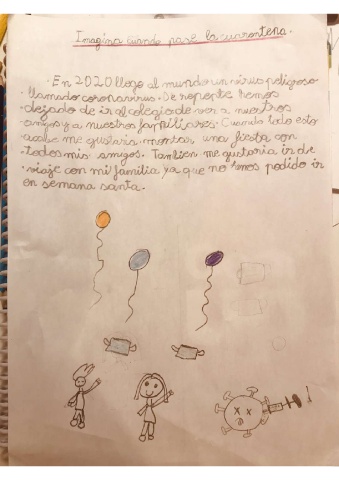 Imagina cuando pase la cuarentena.
En 2020 llego al mundo un virus peligroso
llamado coronavirus. De repente hemos
dejado de ir al colegio de ver a nuestros
amigos y a nuestros familiares. Cuando todo esto
acabe me gustaria montar una fiesta con
todos mis amigos. Tambien me gustaria ir de
viaje con mi familia ya que no hemos podido ir
en semana santa.